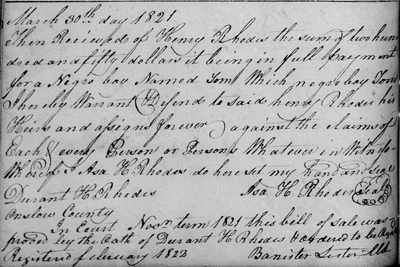 March 30th day 1821
Then Recieved of Henry Rhodes the sum of two hun
dred and fifty dollars it being in full payment
for a Negro boy Named Tom Which negro boy Tom
I hereby Warrant & Defend to said henry Rhodes his
Heirs and assigns forever against the claims of
Each & every Person or Persons Whatever in Witn
Whereof I Asa H Rhodes do here set my hand and seal
Durant H. Rhodes Asa H. Rhodes Seal
Onslow County
In Court Novr term 1821 this bill of sale was
proved by the Oath of Durant H Rhodes & ordered to be
Registered february 1823 Banister Lester